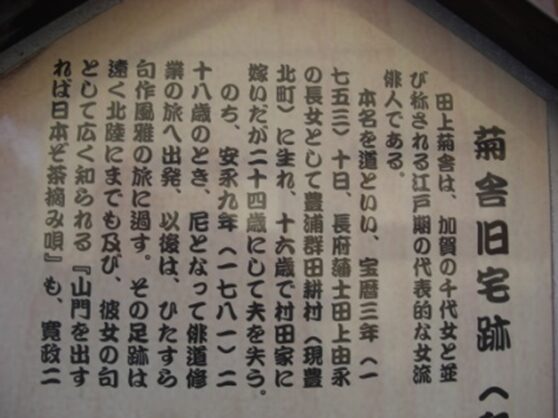 菊舎旧宅跡（
田上菊舎は、加賀の千代女と並
び称される江戸期の代表的な女流
俳人である。
本名を道といい、宝暦三年（一
七五三）十日、長府藩士田上由永
の長女として豊浦群田耕村（現豊
北町）に生れ、十六歳で村田家に
嫁いだが二十四歳にして夫を失う。
のち、安永九年（一七八一）二
十八歳のとき、尼となって俳道修
業の旅へ出発、以後は、ひたすら
句作風雅の旅に過す。その足跡は
遠く北陸にまでも及び、彼女の句
として広く知られる『山門を出す
れば日本ぞ茶摘み唄』も、寛政二